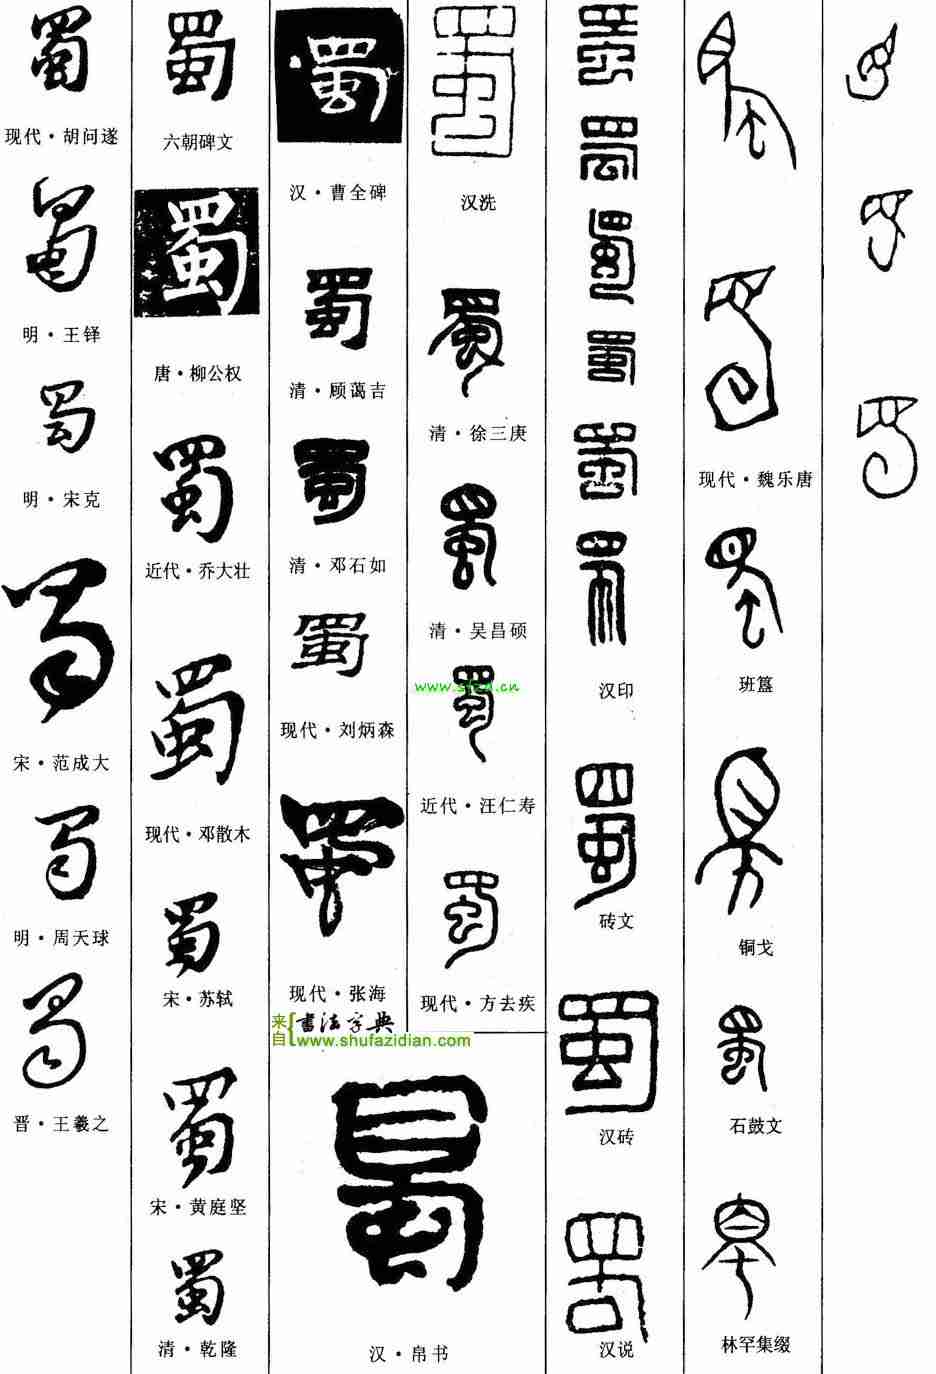 蜀
现代·胡问遂
蜀
明·王铎
蜀
明·宋克
蜀
宋·范成大
蜀
明·周天球
蜀
晋·王羲之
蜀
六朝碑文
蜀
唐·柳公权
蜀
近代·乔大壮
蜀
现代·邓散木
蜀
宋·苏轼
蜀
宋·黄庭坚
蜀
清·乾隆
蜀
汉·曹全碑
蜀
清·顾蔼吉
蜀
清·邓石如
蜀
现代·刘炳森
蜀
现代·张海
来自{书法字典
www.shufazidian.com
蜀
汉·帛书
蜀
汉洗
蜀
清·徐三庚
蜀
清·吴昌硕
www.sfzd.cn
蜀
近代·汪仁寿
蜀
现代·方去疾
蜀
蜀
蜀
蜀
蜀
蜀
汉印
蜀
砖文
蜀
汉砖
蜀
汉说
蜀
蜀
现代·魏乐唐
蜀
班簋
蜀
铜戈
蜀
石鼓文
蜀
林罕集缀
蜀
蜀
蜀